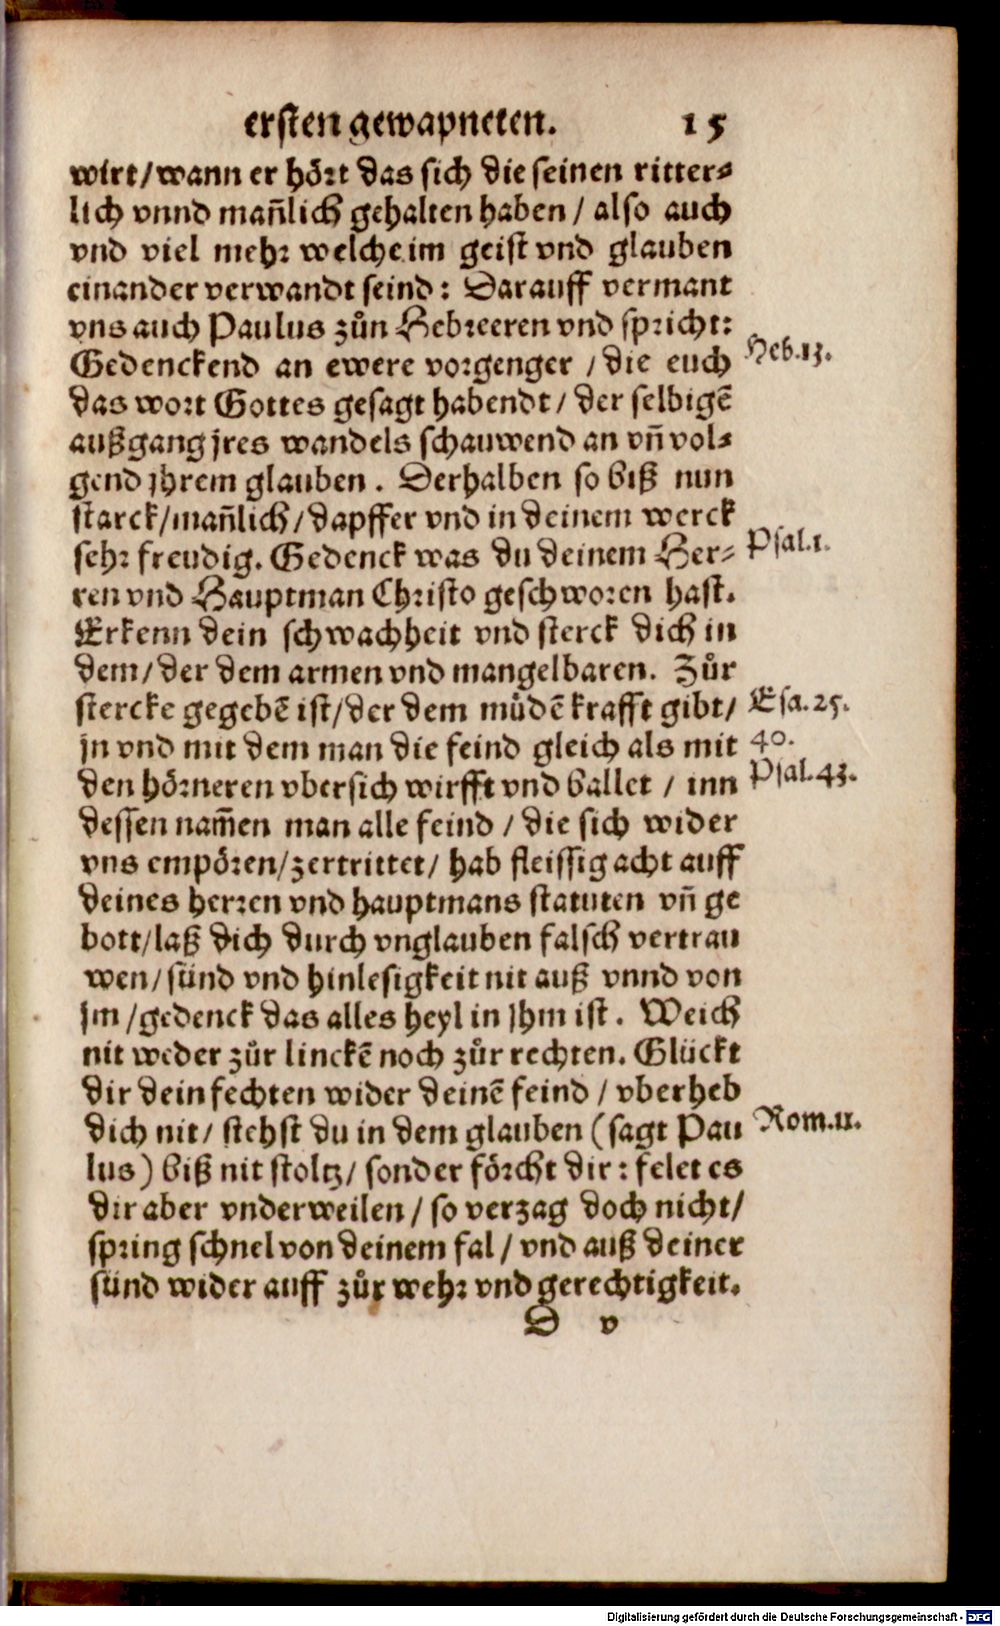 ersten gewapneten. 15
wirt/wann er hört das sich die seinen ritter⸗
lich vnnd mañlich gehalten haben / also auch
vnd viel mehr welche im geist vnd glauben
einander verwandt seind: Darauff vermant
vns auch Paulus zůn Hebreeren vnd spricht:
Gedenckend an ewere vorgenger / die euch
Heb.13.
das wort Gottes gesagt habendt / der selbigē
außgang jres wandels schauwend an vñ vol⸗
gend jhrem glauben . Derhalben so biß nun
starck/mañlich/dapffer vnd in deinem werck
sehr freudig. Gedenck was du deinem Her⸗
Psal.1.
ren vnd Hauptman Christo geschworen hast.
Erkenn dein schwachheit vnd sterck dich in
dem/der dem armen vnd mangelbaren. Zůr
stercke gegebē ist/der dem můdē krafft gibt/
Esa.25.
jn vnd mit dem man die feind gleich als mit
40.
den hörneren vbersich wirfft vnd ballet / inn
Psal.43.
dessen nam̄en man alle feind / die sich wider
vns empören/zertrittet/ hab fleissig acht auff
deines herren vnd hauptmans statuten vñ ge
bott/laß dich durch vnglauben falsch vertrau
wen/sünd vnd hinlesigkeit nit auß vnnd von
jm/gedenck das alles heyl in jhm ist . Weich
nit weder zůr linckē noch zůr rechten. Glückt
dir dein fechten wider deinē feind / vberheb
dich nit/ stehst du in dem glauben (sagt Pau
Rom.11.
lus) biß nit stoltz/ sonder förcht dir: felet es
dir aber vnderweilen / so verzag doch nicht/
spring schnel von deinem fal / vnd auß deiner
sünd wider auff zůr wehr vnd gerechtigkeit.
D v
Digitalisierung gefördert durch die Deutsche Forschungsgemeinschaft - DFG